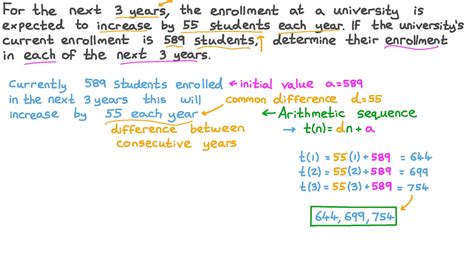 For the next 3 years, the enrollment at a university is
expected to increase by 55 students each year. If the university's
current enrollment is 589 students, determine their enrollment
in each of the next 3 years.
Currently 589 students enrolled ← initial value a=589
in the next 3 years this will common difference d=55
increase by 55 each year ← Arithmetic sequence
difference between → t(n) = dn + a
consecutive years
t(1) = 55(1) + 589 = 644
t(2) = 55(2) + 589 = 699
t(3) = 55(3) + 589 = 754
644, 699, 754